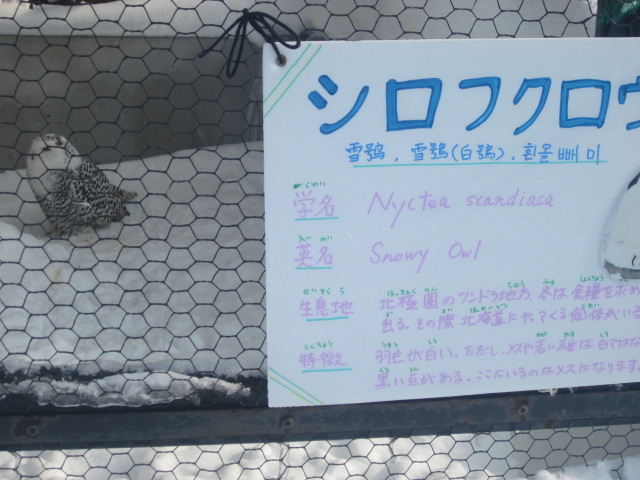 シロフクロウ
雪鴞，雪鴞(白鴞)，흰올빼미
がくめい
学名 Nyctea scandiaca
えいめい
英名 Snowy Owl
せいそくち
生息地 北極圏のツンドラ地方。冬は食糧を求め
出る。その際 北海道にやってくる個体がいる
とくちょう
特徴 羽色が白い。ただし、メスと若い雄は白ではな
黒い点がある。ここにいるのはメスになります。